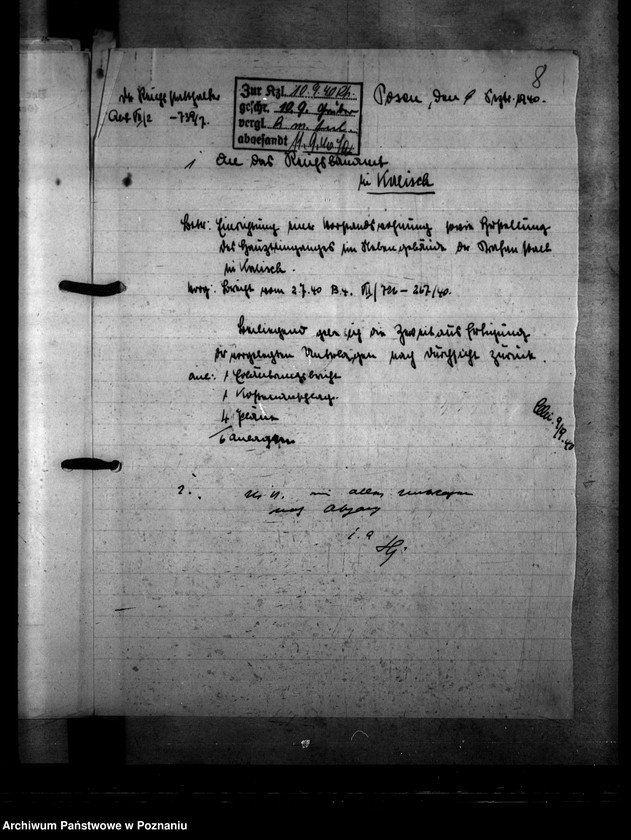 8
Der Reichsstatthalter
Abt. VII/2 - 739/7.
Zur Kzl. 10.9.40
geschr. 10.9.
vergl.
abgesandt 11.9.40
Posen, den 9 Septr. 1940.
1 An das Reichsbauamt
in Kalisch
Betr: Einrichtung einer Vorstandswohnung sowie Herstellung
des Haupteinganges im Nebengebäude der
in Kalisch.
Vorg: Bericht vom 27.40 B.4. VII/722 - 267/40.
Beiliegend gebe ich die Zweitausfertigung
der vorgelegten Unterlagen nach Durchsicht zurück.
Anl: 1 Erläuterungsbericht
1 Kostenanschlag.
4 Pläne
6 Anlagen
9/9.40
2. mit allen Unterlagen
nach Abgang
i. A
Archiwum Państwowe w Poznaniu